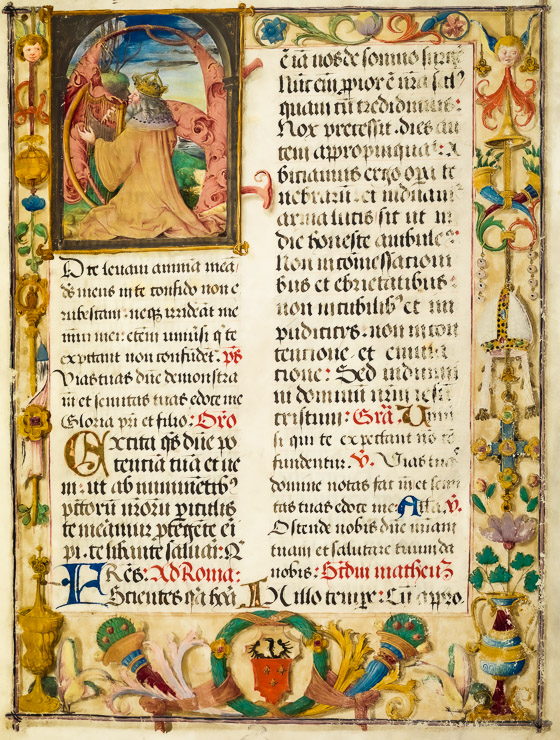 D te leuaui animā meā:
ds meus in te confido non e
rubescam: neqꝫ irrideāt me
inimi mei: etem uniusi q te
expectant non confūdēt. ps
Vias tuas dne demonstra
m et semitas tuas edoce me
Gloria pri et filio: Oro
Excita qs dne po
tenciā tuā et ue
ni: ut ab iminētibꝰ
pctorū nrorū piculis
te meamur ptegēte eri
pi. te libante saluari: Q
Frēs: Ad Roma:
Scientes qa hora
ē ia nos de somno surge
Nūc em ppior ē nra salꝰ
quam cū credidimus:
Nox precessit. dies au
tem appropinquait: A
biciamus ergo opa te
nebrarū: et induam
arma lucis sic ut in
die honeste ambule:
Non in comessationi
bus et ebrietatibus:
non in cubilibꝰ et im
pudicitys: non in con
tencione et emula
cione: Sed indumi
ni dominum nrm iesū
cristum: Gra Uniu
si qui te expectant nō cō
fundentur. V. Vias tuas
domine notas fac m et semi
tas tuas edoce me: Alla. V.
Ostende nobis dne miam
tuam et salutare tuum da
nobis: Scdm matheū
In illo tempe: Cū appro.